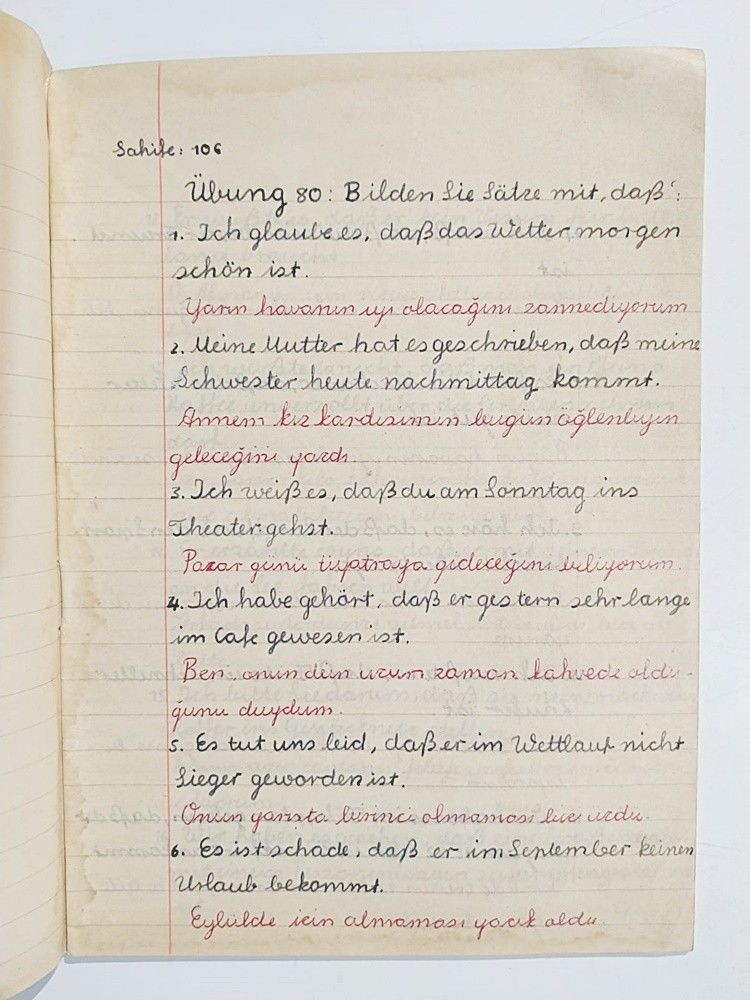 Sahife: 106
Übung 80: Bilden Sie Sätze mit, daß':
1. Ich glaube es, daß das Wetter morgen
schön ist.
Yarın havanın iyi olacağını zannediyorum
2. Meine Mutter hat es geschrieben, daß meine
Schwester heute nachmittag kommt.
Annem kız kardişimin bugün öğlenliyin
geleceğini yazdı.
3. Ich weiß es, daß du am Sonntag ins
Theater gehst.
Pazar günü tiyatroya gideceğini biliyorum.
4. Ich habe gehört, daß er gestern sehr lange
im Cafe gewesen ist.
Ben onun dün uzum zaman kahvede oldu-
ğunu duydum.
5. Es tut uns leid, daß er im Wettlauf nicht
Sieger geworden ist.
Onun yarışta birinci olmaması bizi üzdü.
6. Es ist schade, daß er im September keinen
Urlaub bekommt.
Eylülde izin almaması yazık oldu.